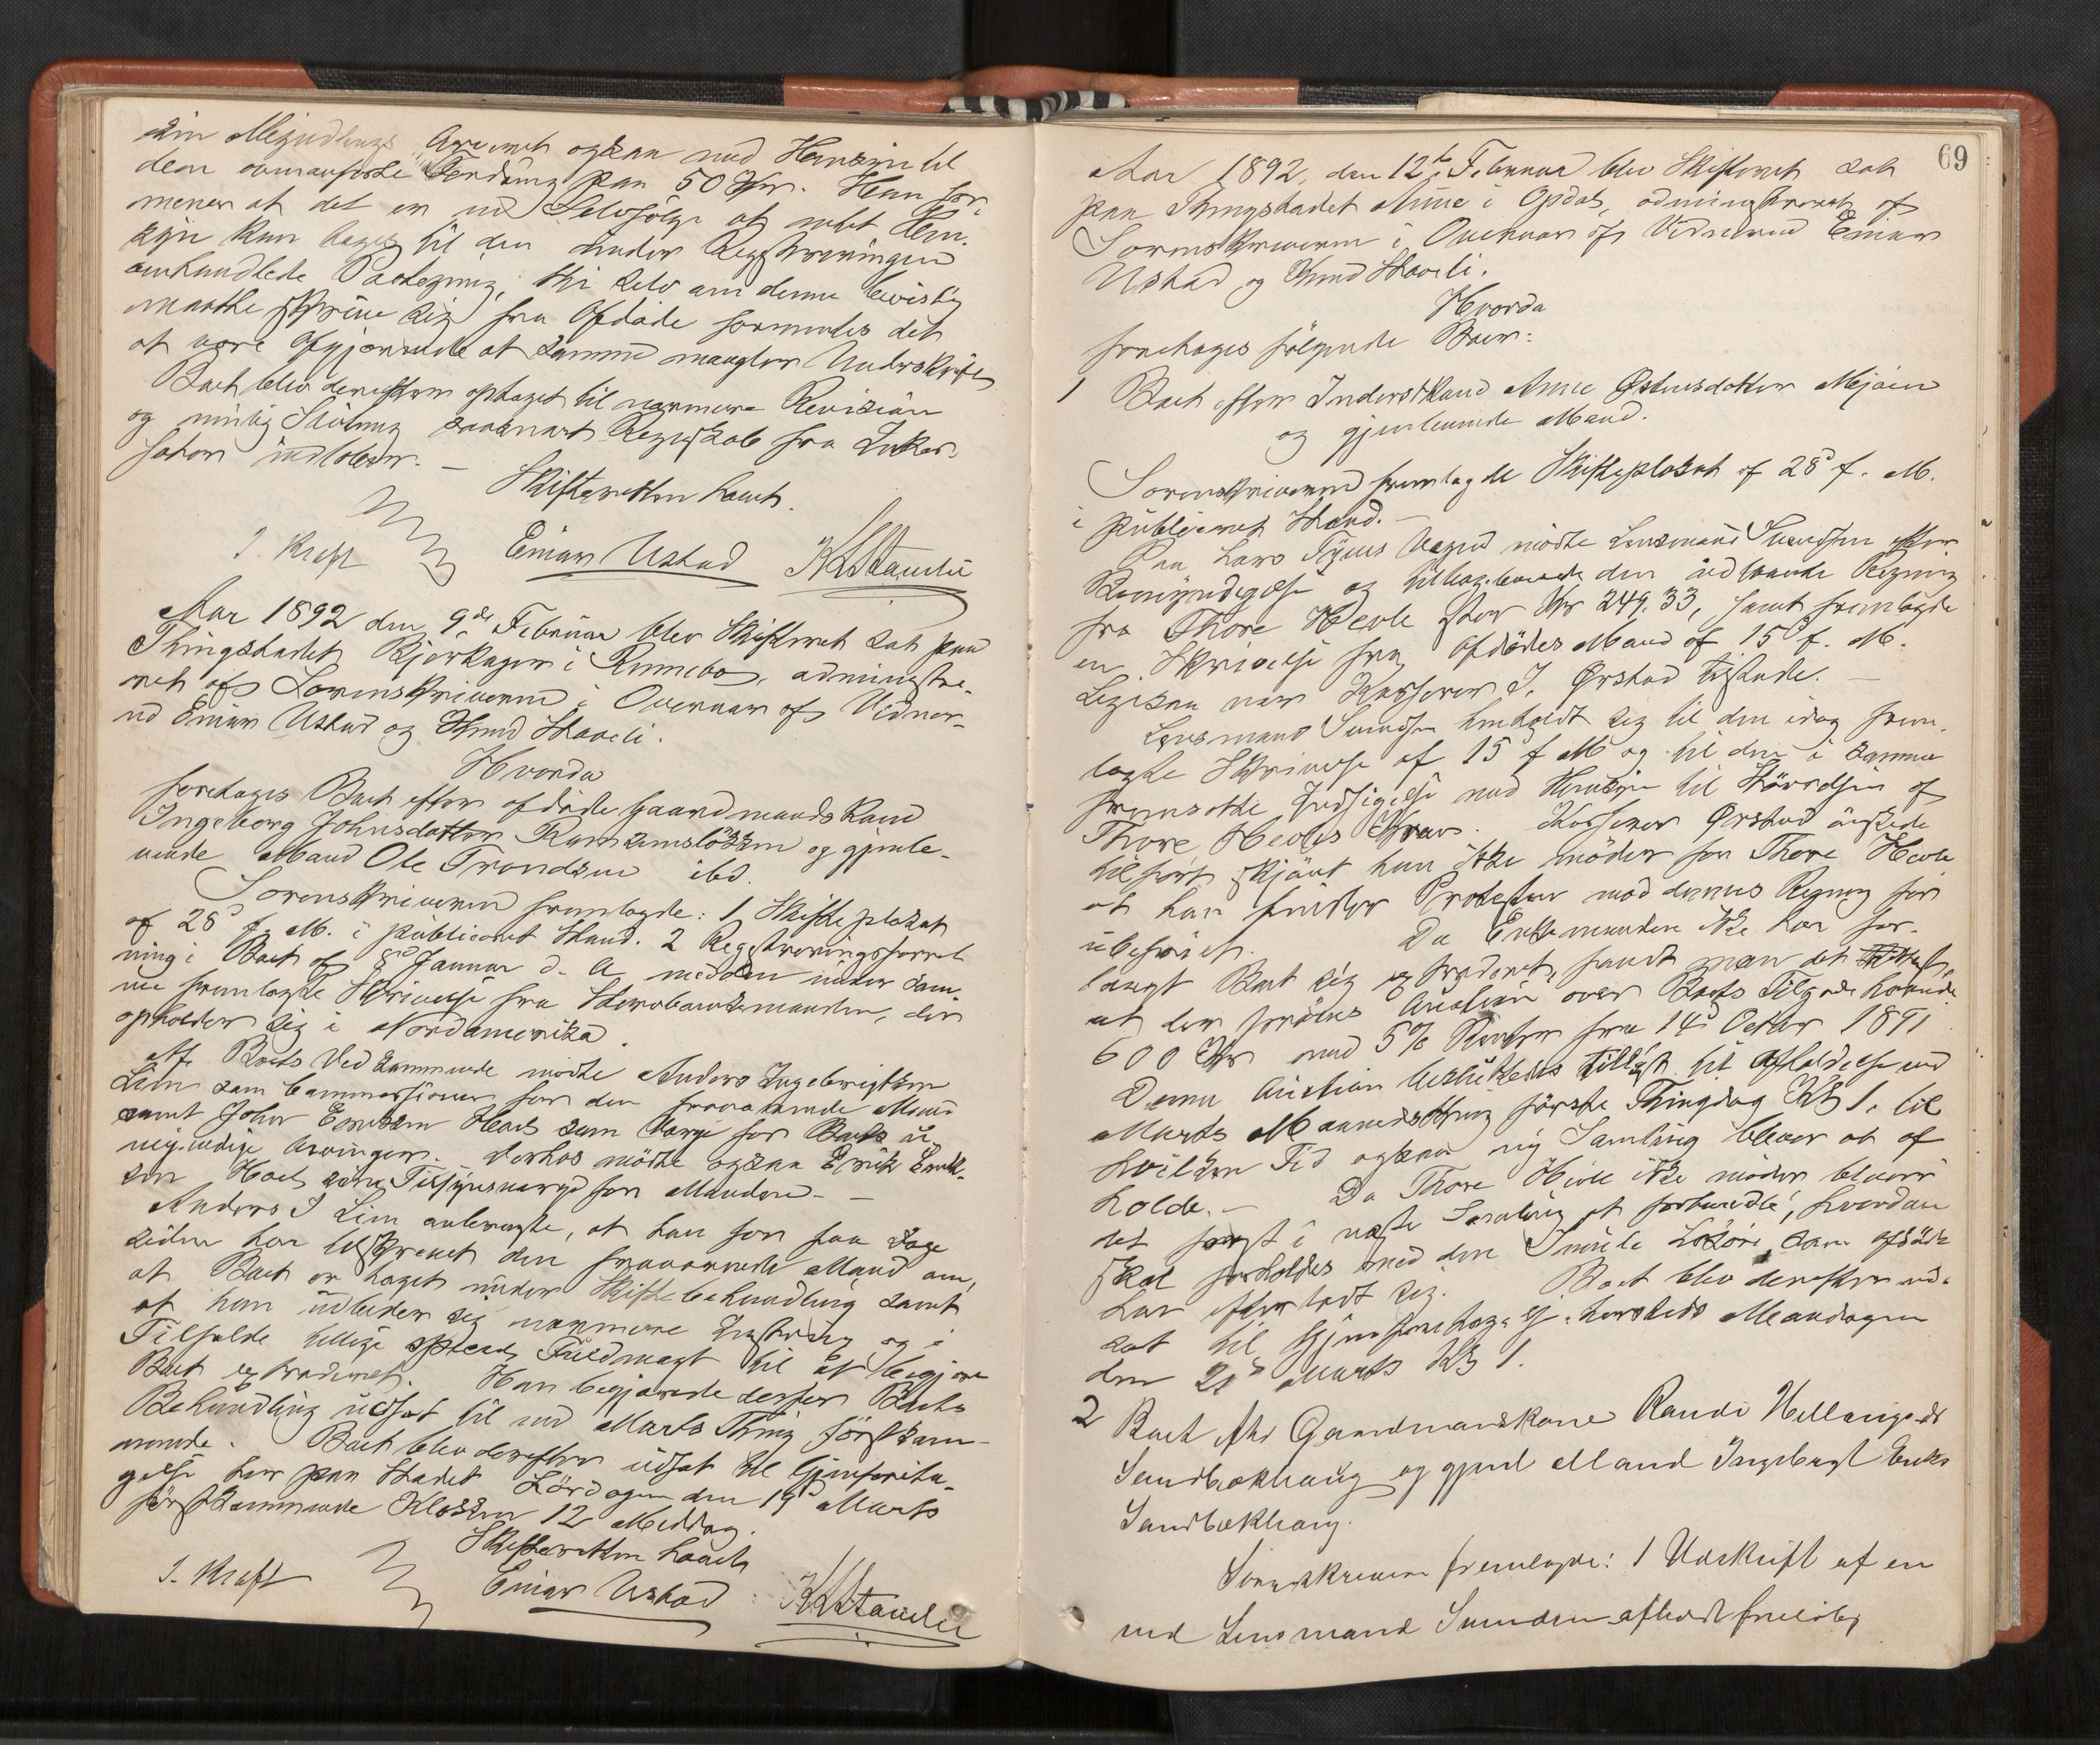 sin Afgjørelse ogsaa med Hensyn til
dem omanførte Fordring paa 50 Kr. Han for-
mener at det er en Selvfølge at intet Hen-
syn kan tages til den under Registreringen
omhandlede Paategning, thi selv om denne
maatte skrive sig fra Afdøde formentes det
at være afgjørende at samme mangler Underskrift
Boet blev derefter optaget til nærmere Revision
og mulig Slutning saasnart Regnskab fra Inkas-
sator indløber. –
Skifteretten hævet.
J. Kraft Einar Ustad K Staveli
Aar 1892 den 9de Februar blev Skifteret sat paa
Thingstedet Bjerkager i Rennebo, administre-
ret af Sorenskriveren i Overvær af Vidner-
ne Einar Ustad og Knud Staveli.
Hvorda
foretages Boet efter afdøde Gaardmandskone
Ingeborg Johnsdatter Ramsemsløkken og gjenle-
vende Mand Ole Trondsen ibd.
Sorenskriveren fremlagde: 1 Skifteplakat
af 28d f. M. i publiceret Stand. 2 Registreringsforret-
ning i Boet af Januar d. A. med den under sam-
me fremlagte Skrivelse fra Sterbboenkemanden, der
opholder sig i Nordamerika.
Af Boets Vedkommende mødte Anders Ingebrigtsen
Lien som Commissioner for den fraværende Mand
samt John Eriksen Hoel som Værge for Boets u-
myndige Arvinger. Derhos mødte ogsaa Erik Erik-
sen Hoel som Tilsynsværge for Manden. –
Anders I Lien anbragte, at han for faa Dage
siden har tilskrevet den fraværende Mand om,
at Boet er taget under Skiftebehandling samt
at han udbeder sig nærmere Instrux og i
Tilfælde tillige Fuldmagt til at begjære
Boet extraderet. Han begjærede derfor Boets
Behandling udsat til ved Marts Thing førstkom-
mende. Boet blev derefter udsat til Gjenforeta-
gelse her paa Stedet Lørdagen den 19d Marts
førstkommende Klokken 12 Middag.
Skifteretten hævet
J. Kraft Einar Ustad K Staveli
69
Aar 1892, den 12te Februar blev Skifteret sat
paa Thingstedet Aune i Opdal, administreret af
Sorenskriveren i Overvær af Vidnerne Einar
Ustad og Knud Staveli.
Hvorda
foretages følgende Boer:
1 Boet efter Inderstkone Anne Østensdatter Mjøen
og gjenlevende Mand.
Sorenskriveren fremlagde Skifteplakat af 28d f. M.
i publiceret Stand. –
Paa Lars Vegne mødte Lensmand Svendsen efter
Bemyndigelse og tilbageleverede den udlaante Regning
fra Thore Hevle stor Kr 249.33, samt fremlagde
en Skrivelse fra Afdødes Mand af 15d f. M.
Ligesaa var Kasserer J. Ørstad tilstede. –
Lensmand Svendsen henholdt sig til den idag frem-
lagte Skrivelse af 15 f M og til den i samme
fremsatte Indsigelse med Hensyn til Størrelsen af
Thore Hevles Krav. Kasserer Ørstad ønskede
tilført skjønt han ikke møder for Thore Hevle
at han finder Protesten mod dennes Regning for
ubeføiet. Da Enkemanden ikke har for-
langt Boet sig extraderet, fandt man det
at der prøves Auction over Boets Tilgodehavende
600 Kr med 5% Renter fra 14d October 1891
Denne Auction besluttedes tillyst til Afholdelse ved
Marts Maanedsthing første Thingdag Kl 1. til
hvilken Tid ogsaa ny Samling bliver at af-
holde. – Da Thore Hevle ikke møder bliver
det først i næste Samling at forhandle, hvordan
skal forholdes med den Smule Løsøre, som afdøde
har efterladt sig. Boet blev derefter ud-
sat til Gjenforetagelse hersteds Mandagen
den 21d Marts Kl 1.
2 Boet efter Gaardmandskone Randi
Sandbækhaug og gjenl Mand Ingebrigt Eriks
Sandbækhaug.
Sorenskriveren fremlagde: 1 Udskrift af en
ved Lensmand Svendsen afholdt foreløbig